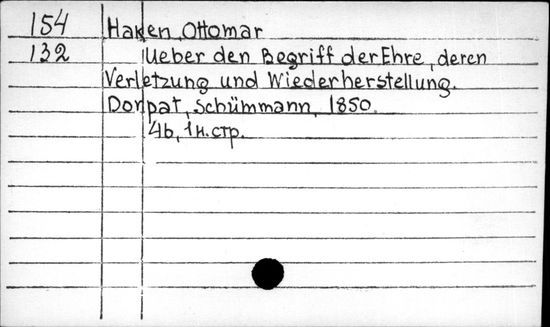 154 Haken, Ottomar
132 Ueber den Begriff der Ehre, deren
Verletzung und Wiederherstellung.
Dorpat, Schümmann, 1850.
46, 1 н. стр.